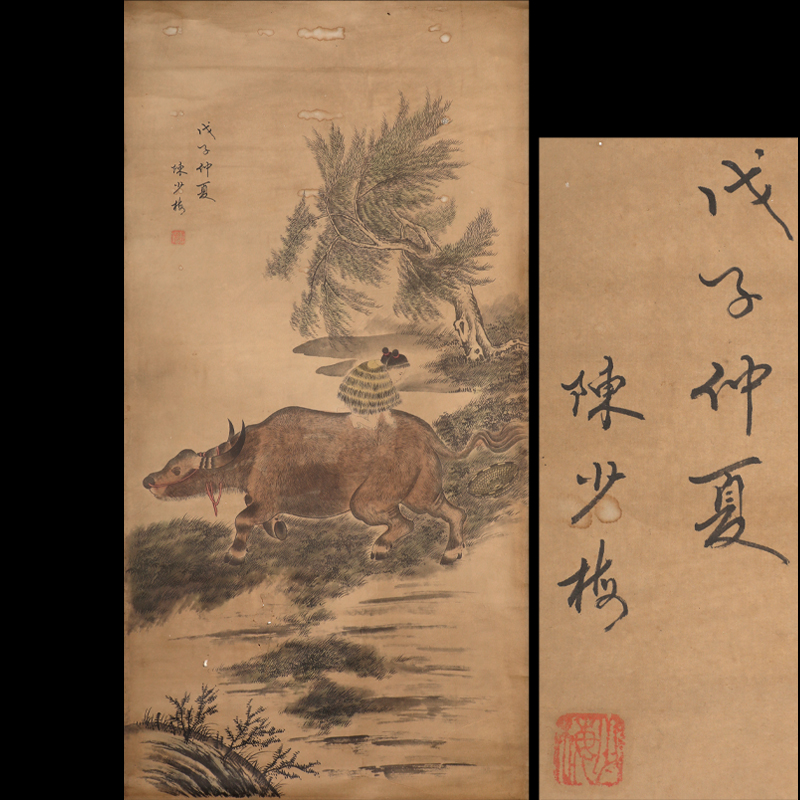 戊子仲夏
陳少梅
戊子仲夏
陳少梅